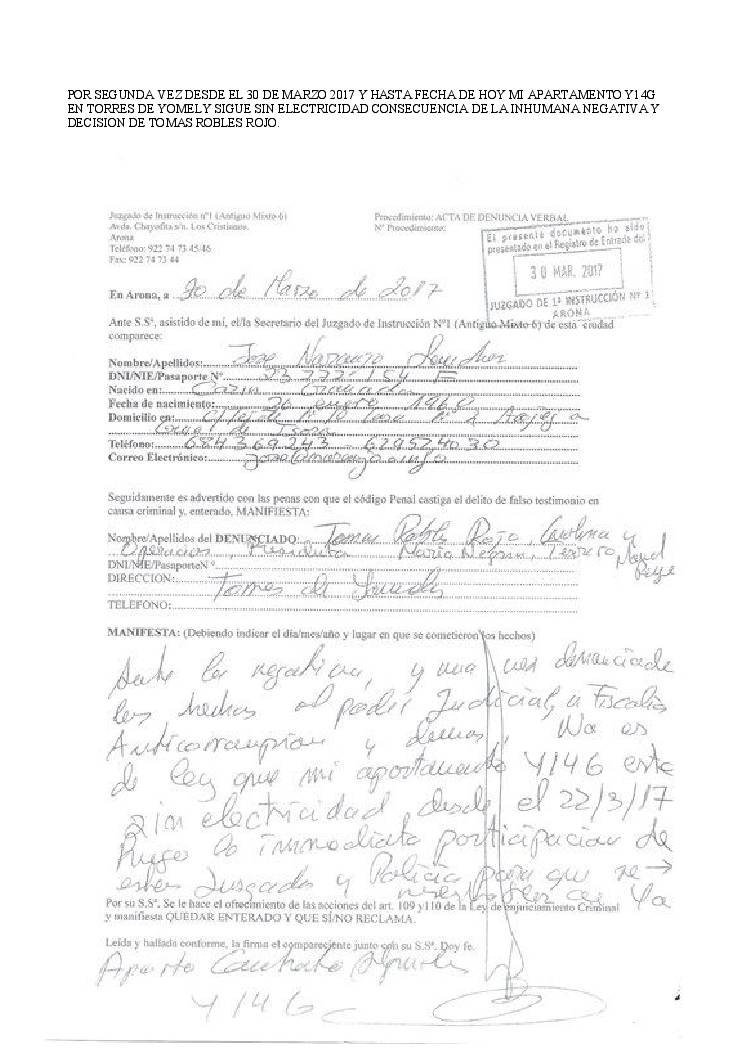 POR SEGUNDA VEZ DESDE EL 30 DE MARZO 2017 Y HASTA FECHA DE HOY MI APARTAMENTO Y14G
EN TORRES DE YOMELY SIGUE SIN ELECTRICIDAD CONSECUENCIA DE LA INHUMANA NEGATIVA Y
DECISION DE TOMAS ROBLES ROJO.
Juzgado de Instrucción nº1 (Antiguo Mixto 6)
Avda. Chayofita s/n. Los Cristianos.
Arona
Teléfono: 922 74 73 45/46
Fax: 922 74 73 44
Procedimiento: ACTA DE DENUNCIA VERBAL
Nº Procedimiento:
El presente documento ha sido
presentado en el Registro de Entrada del
30 MAR. 2017
JUZGADO DE 1ª INSTRUCCIÓN Nº 1
ARONA
En Arona, a 30 de Marzo de 2017
Ante S.Sª, asistido de mí, el/la Secretario del Juzgado de Instrucción Nº1 (Antiguo Mixto 6) de esta ciudad
comparece:
Nombre/Apellidos: Jose Naranjo
DNI/NIE/Pasaporte Nº
Nacido en: Granada
Fecha de nacimiento: enero 1960
Domicilio en:
Teléfono: 684 369 243
Correo Electrónico:
Seguidamente es advertido con las penas con que el código Penal castiga el delito de falso testimonio en
causa criminal y, enterado, MANIFIESTA:
Nombre/Apellidos del DENUNCIADO: Tomas Robles Rojo, Carolina y
Presidenta Mario Negrin, Tesorero
DNI/NIE/Pasaporte Nº
DIRECCION: Torres de Yomely
TELEFONO:
MANIFESTA: (Debiendo indicar el día/mes/año y lugar en que se cometieron los hechos)
Ante la negativa, y una vez denunciado
los hechos al poder Judicial, a Fiscalia
Anticorrupcion y demas, No es
de ley que mi apartamento Y14G este
sin electricidad desde el 22/3/17
Ruego la inmediata participacion de
estos Juzgados y Policia para que se →
Ya
Por su S.Sª. Se le hace el ofrecimiento de las acciones del art. 109 y110 de la Ley de enjuiciamiento Criminal
y manifiesta QUEDAR ENTERADO Y QUE SÍ/NO RECLAMA.
Leída y hallada conforme, la firma el compareciente junto con su S.Sª. Doy fe.
Aporto Contrato Alquiler
Y14G